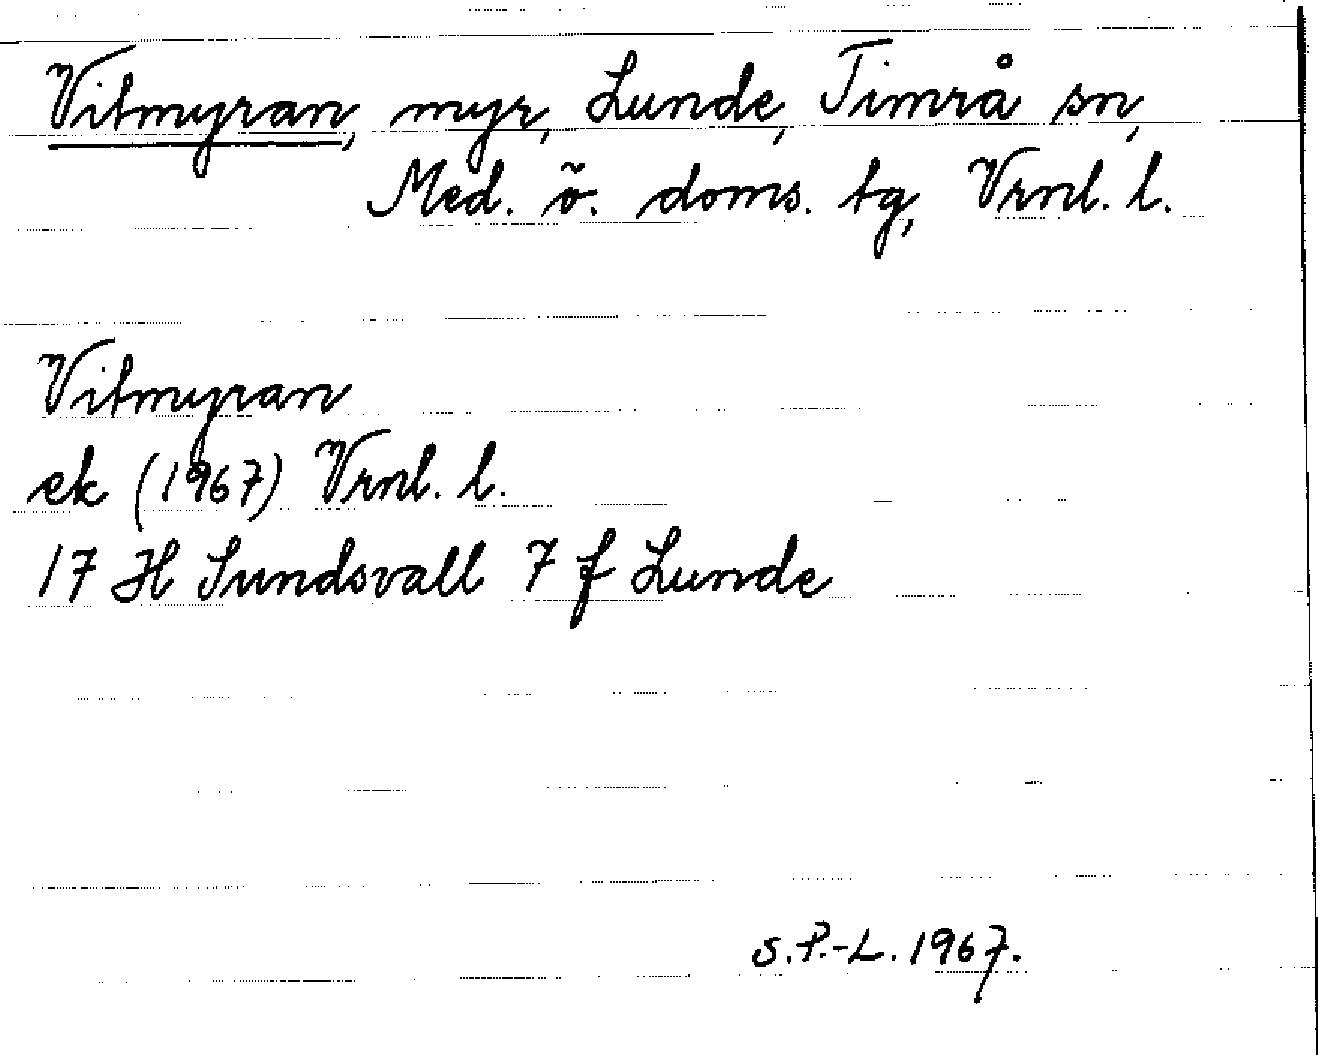 Vitmyran, myr, Lunde, Timrå sn,
Med. ö. doms. tg, Vrnl. l.
Vitmyran
ek (1967) Vrnl. l.
17 H Sundsvall 7 f Lunde
S.P.-L. 1967.